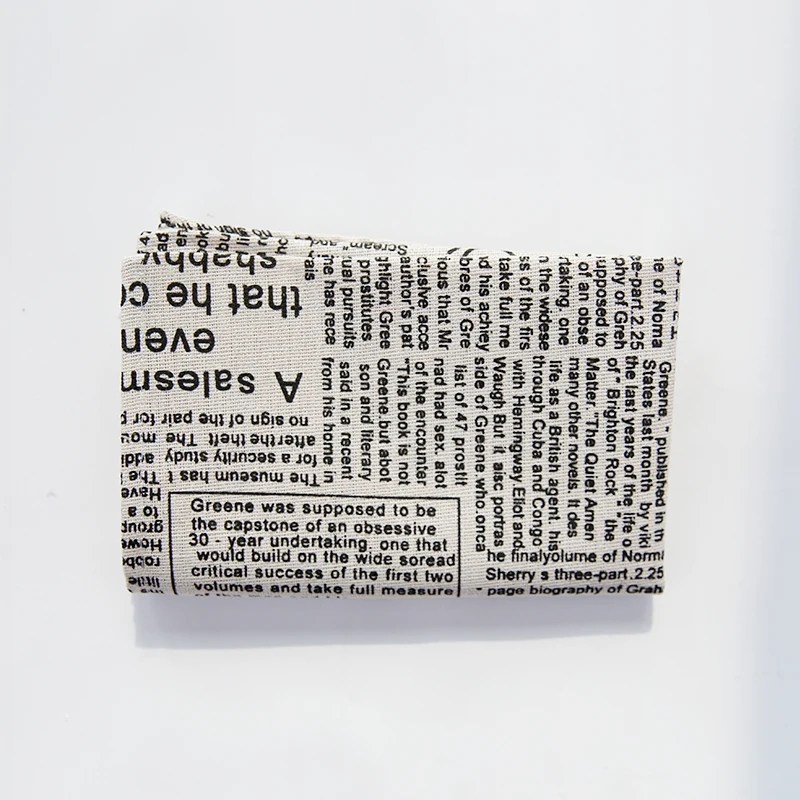 Greene was supposed to be
the capstone of an obsessive
30 - year undertaking, one that
would build on the wide soread
critical success of the first two
volumes and take full measure
he finalyolume of Norma
Sherry s three-part.2.25
" page biography of Grah
Greene, " published in th
States last month by viki
the last years of the life o
of " Brighton Rock " the
Matter."The Quiet Amen
many other novels. It des
life as a British agent, his
through Cuba and Congo
with Hemingway Eliot and
Waugh But it aisc portras
side of Greene who onca
list of 47 prostit
nad had sex. alot
of the encounter
"This book is not
Greene,but abot
son and literary
said in a recent
from his home in
e of Noma
e-part.2.25
phy of Greh
upposed to
of an obse
rtaking, one
n the widese
ss of the firs
take full me
d his achey
bres of Gre
ious that Mr
clusive acce
author's pat
ghlight Gree
prostitutes
ual pursuits
ne has rece
The museum has t
for a security study addi
afterthe theft. The mou
no sign of the pair for p
A salesm
even
that he co
shabby
Scream" and
Have
to a
group
Howe
robbe
little